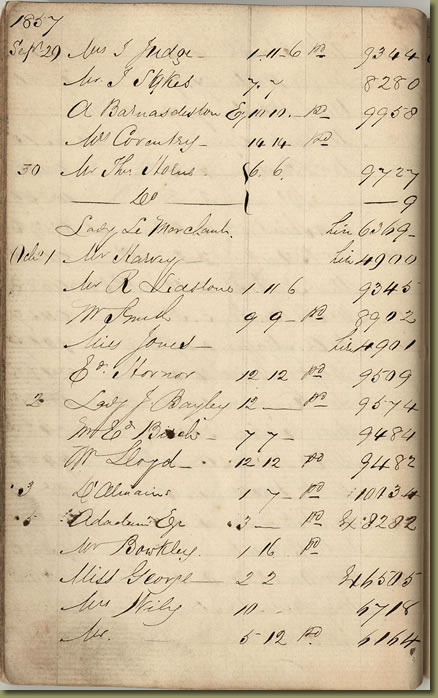 1857
Sept 29 Mrs J Judge 1 11 6 pd 9344
Mr J Sykes 7 7 8280
A Barnardiston Eq 10 10 pd 9958
Mrs Coventry 14 14 pd
30 Mr Thos 6 6 9727
Do 9
Lady Le Marchant hire 6369
Octr 1 Mr Harvey hire 4900
Mr R Lidstone 1 11 6 9345
Mr Smith 9 9 pd 8902
Miss Jones hire 4901
Ed Hornor 12 12 pd 9509
2 Lady J Bayley 12 pd 9574
Mr Ed Birch 7 7 9484
Mr Lloyd 12 12 pd 9482
3 D'Almaine 1 7 pd 10134
5 Eq 3 pd 8282
Mr Bowkley 1 16 pd
Miss George 2 2 6505
Mrs Wily 10 6718
Mr. 5 12 pd 6164